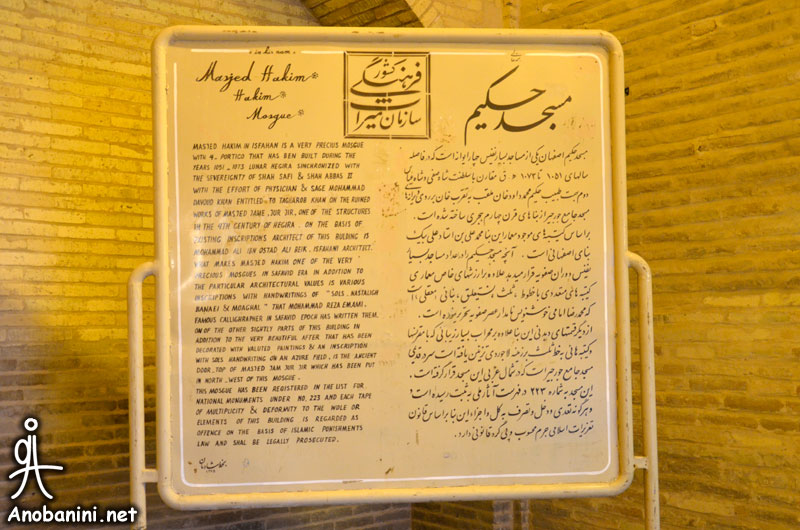 in his name
Masjed Hakim
Hakim
Mosque
سازمان میراث
فرهنگی
کشور
مسجد حکیم
MASJED HAKIM IN ISFAHAN IS A VERY PRECIOUS MOSQUE
WITH 4. PORTICO THAT HAS BEN BUILT DURING THE
YEARS 1051-1073 LUNAR HEGIRA SINCHRONIZED WITH
THE SEVEREIGNTY OF SHAH SAFI & SHAH ABBAS II
WITH THE EFFORT OF PHYSICIAN & SAGE MOHAMMAD
DAVOUD KHAN ENTITLED. TO TAGUAROB KHAN ON THE RUINED
WORKS OF MASJED JAME. JUR JIR, ONE OF THE STRUCTURES
IN THE 4TH CENTURY OF HEGIRA. ON THE BASIS OF
EXISTING INSCRIPTIONS ARCHITECT OF THIS BULDING IS
MOHAMMAD ALI IBN OSTAD ALI BEIK. ISFAHANI ARCHITECT.
WHAT MAKES MASJED HAKIM ONE OF THE VERY
PRECIOUS MOSQUES IN SAFAVID ERA IN ADDITION TO
THE PARTICULAR ARCHITECTURAL VALUES IS VARIOUS
INSCRIPTIONS WITH HANDWRITINGS OF "SOLS. NASTALIGH
BANAEI & MOAGHAL" THAT MOHAMMAD REZA EMAMI.
FAMOUS CALLIGHRAPHER IN SAFAVID EPOCH HAS WRITTEN THEM.
ON OF THE OTHER SIGHTLY PARTS OF THIS BUILDING IN
ADDITION TO THE VERY BEAUTIFUL AFTER THAT HAS BEEN
DECORATED WITH VALUTED PAINTINGS & AN INSCRIPTION
WITH SOLS HANDWRITING ON AN AZURE FIELD, IS THE ANCIENT
DOOR, TOP OF MASJED JAM JUR JIR WHICH HAS BEEN PUT
IN NORTH. WEST OF THIS MOSQUE.
THIS MOSQUE HAS BEEN REGISTERED IN THE LIST FOR
NATIONAL MONUMENTS UNDER NO. 223 AND EACH TAPE
OF MULTIPLICITY & DEFORMITY TO THE WHOLE OR
ELEMENTS OF THIS BUILDING IS REGARDED AS
OFFENCE ON THE BASIS OF ISLAMIC PUNISHMENTS
LAW AND SHAL BE LEGALLY PROSECUTED.
مسجد حکیم اصفهان یکی از مساجد بسیار نفیس چهار ایوانه است که در فاصله
سالهای ۱۰۵۱ تا ۱۰۷۳ ه ق مقارن با سلطنت شاه صفی و شاه عباس
دوم به همت طبیب حکیم محمد داود خان ملقب به تقرب خان بر روی خرابه‌های
مسجد جامع جورجیر از بناهای قرن چهارم هجری ساخته شده است.
بر اساس کتیبه‌های موجود معمار این بنا محمد علی بن استاد علی بیک
بنای اصفهانی است. آنچه مسجد حکیم را در اعداد مساجد بسیار
نفیس دوران صفویه قرار میدهد علاوه بر ارزشهای خاص معماری
کتیبه‌های متعددی با خطوط ثلث، نستعلیق، بنائی معقلی است
که محمد رضا امامی خوشنویس نامدار عصر صفویه تحریر نموده است.
از دیگر قسمتهای دیدنی این بنا علاوه بر محراب بسیار زیبائی که با مقرنسها
و کتیبه‌هایی به خط ثلث بر زمینه لاجوردی تزئین یافته است سر در قدیمی
مسجد جامع جورجیر است که در شمال غربی این مسجد قرار گرفته است.
این مسجد به شماره ۲۲۳ در فهرست آثار ملی به ثبت رسیده است و
هر گونه تعدی و دخل و تصرف به کل و اجزاء این بنا بر اساس قانون
تعزیرات اسلامی جرم محسوب و پیگرد قانونی دارد.
Anobanini.net